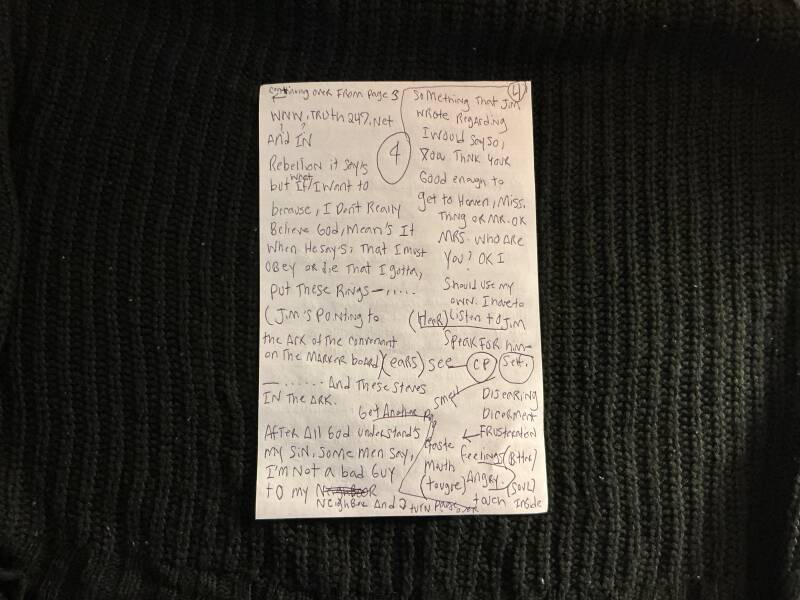 continuing over From page 3
WWW.TRUTH247.Net
? ?
And IN
4
Rebellion it say's
but what If I Want to
because, I Don't Really
Believe God, Mean's It
When He say's; That I must
OBEY OR die That I gotta,
Put These Rings — . . . . .
( Jim's Pointing to
the ARK of the convenant
on The MARKER board)
— . . . . . . And These Staves
IN The ARK.
AfteR All God understand's
my Sin, Some men Say,
I'm Not a bad Guy
to my
NeighBor And
turn Page over
4
Something That Jim
Wrote Regarding
I Would Say So,
You Think Your
Good enough to
get to Haven, Miss.
Thing OR MR. OK
MRS. Who ARE
You? OK I
Should use my
own. I have to
(Hear) Listen to Jim
Speak For him
(ears) see CP Self.
smell
Discerning
Dicerment
Got Another
Frustration
taste feelings (Bitter)
mouth Angry
(tougre) (Soul)
touch Inside